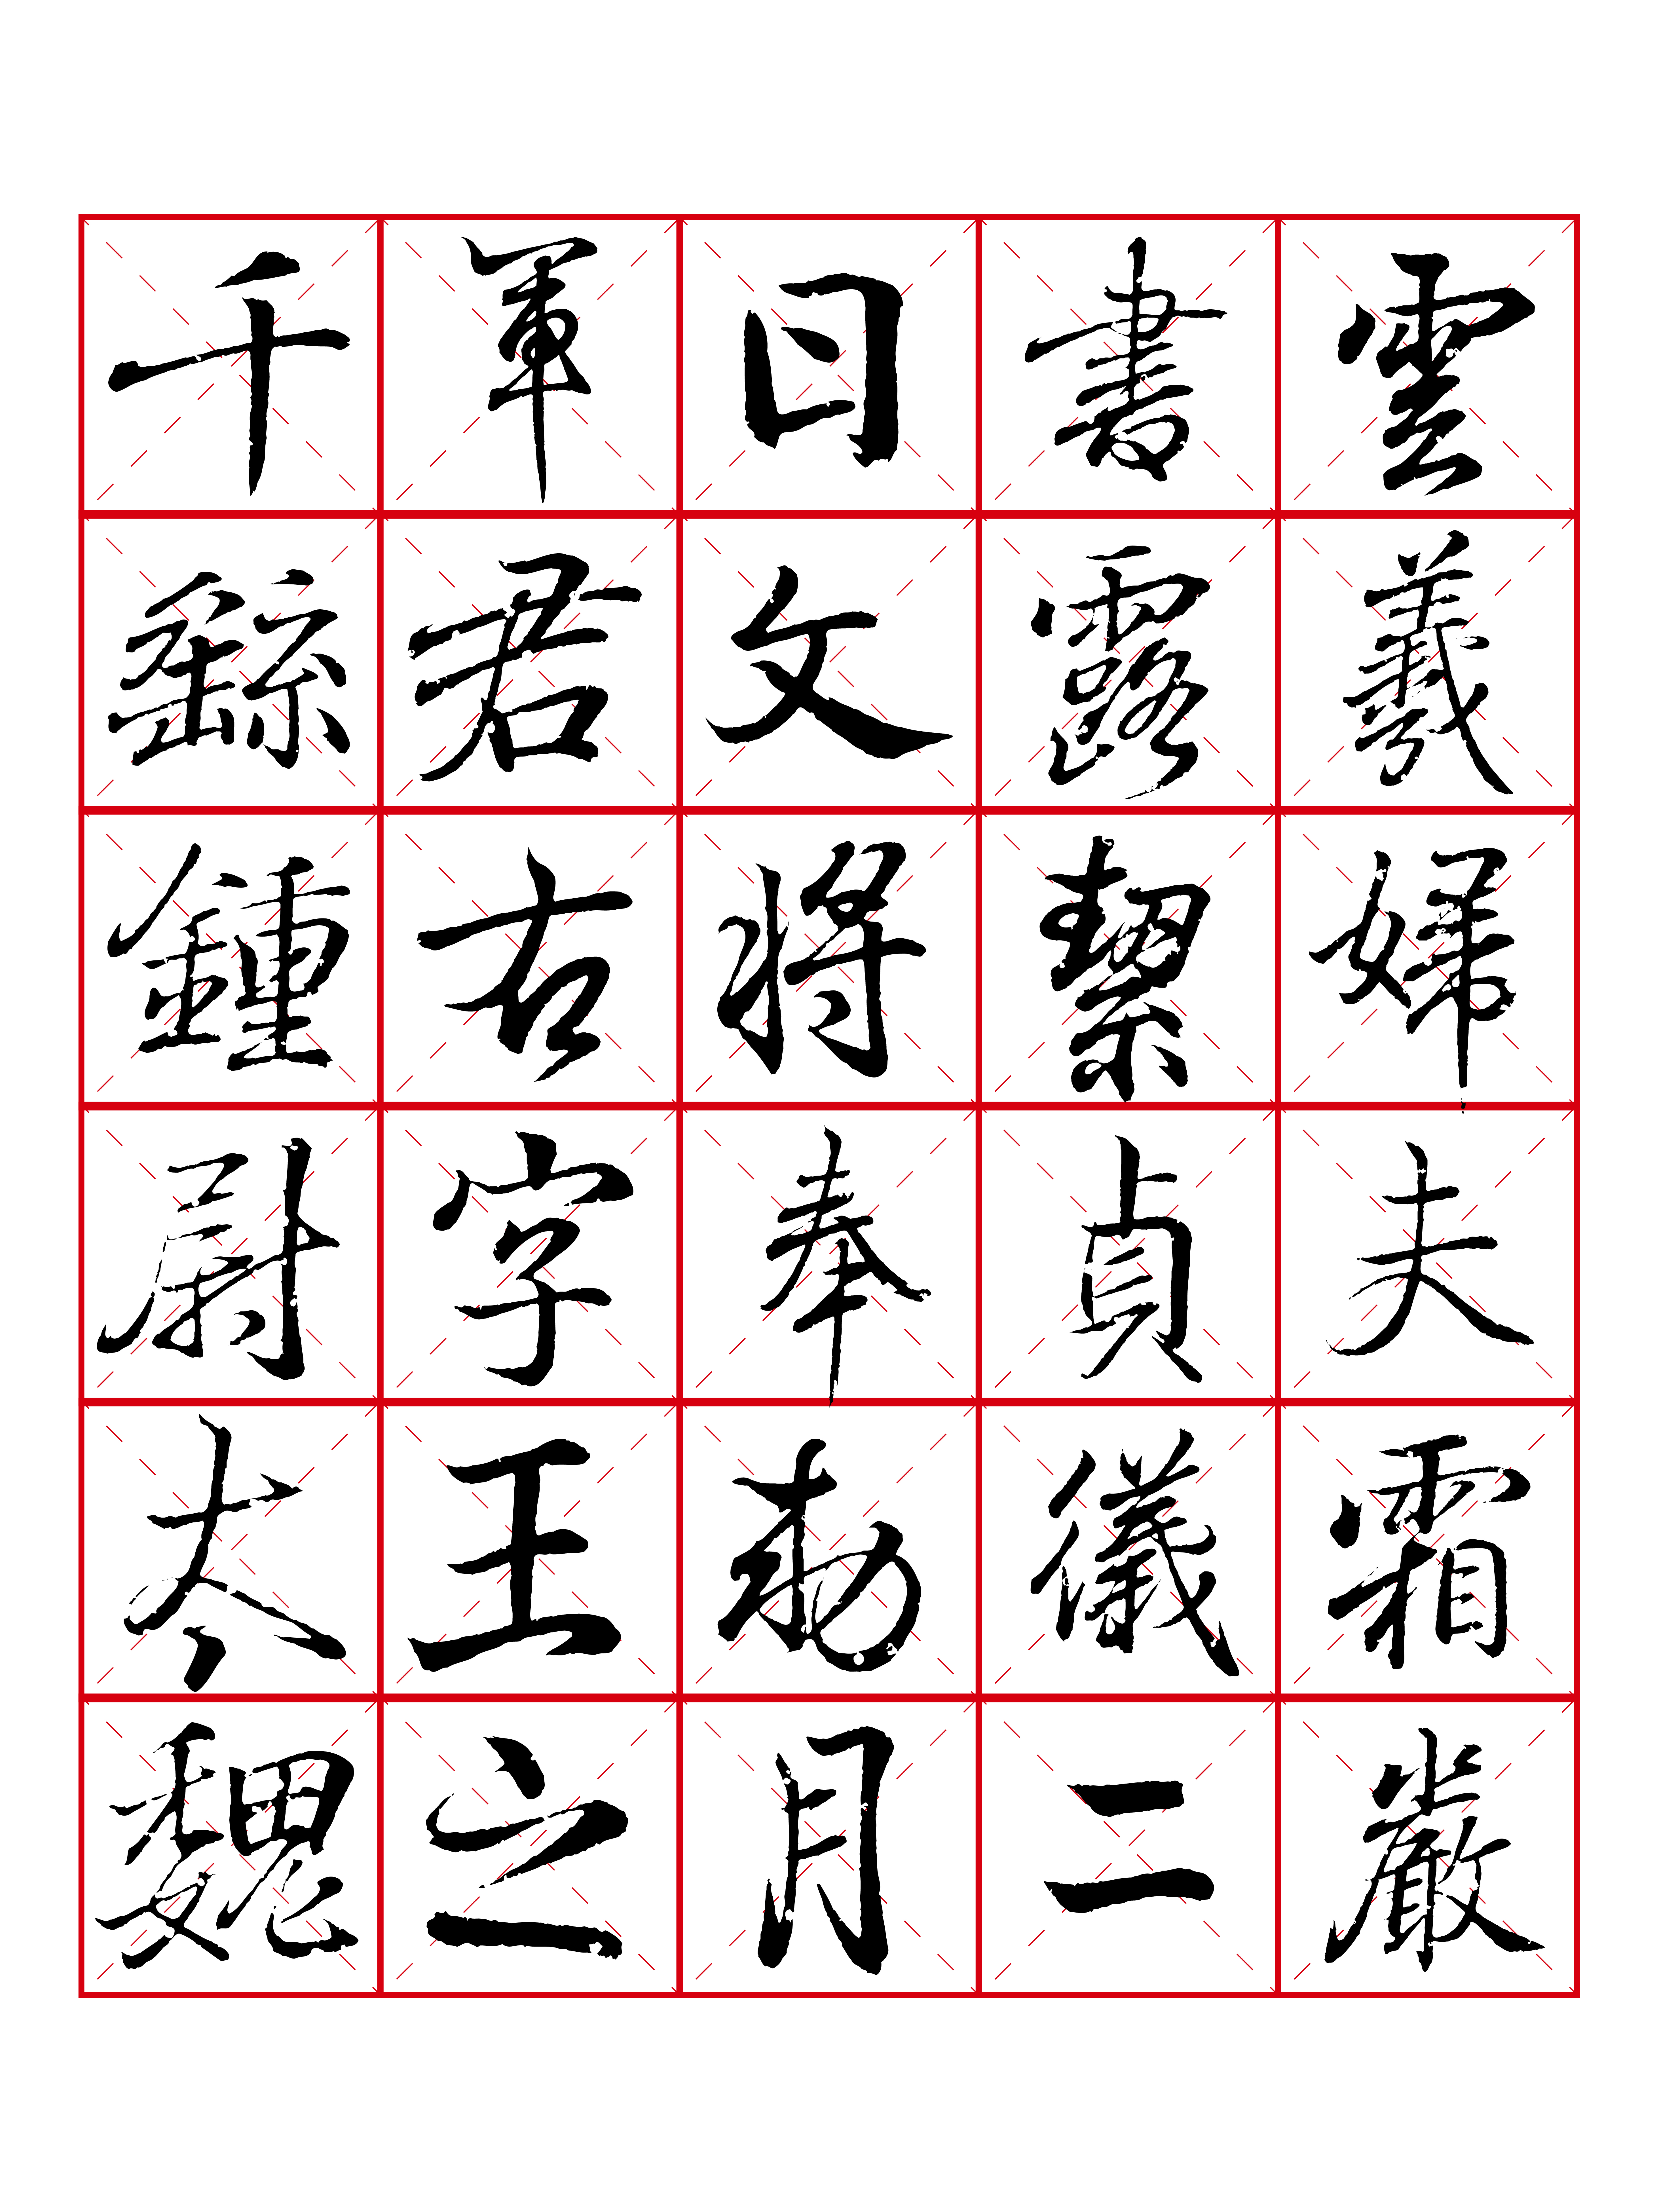 千軍日書雲
繇君文露羲
鍾右將絜婦
尉字奉貞夫
太王勅儀霜
魏之月二嚴